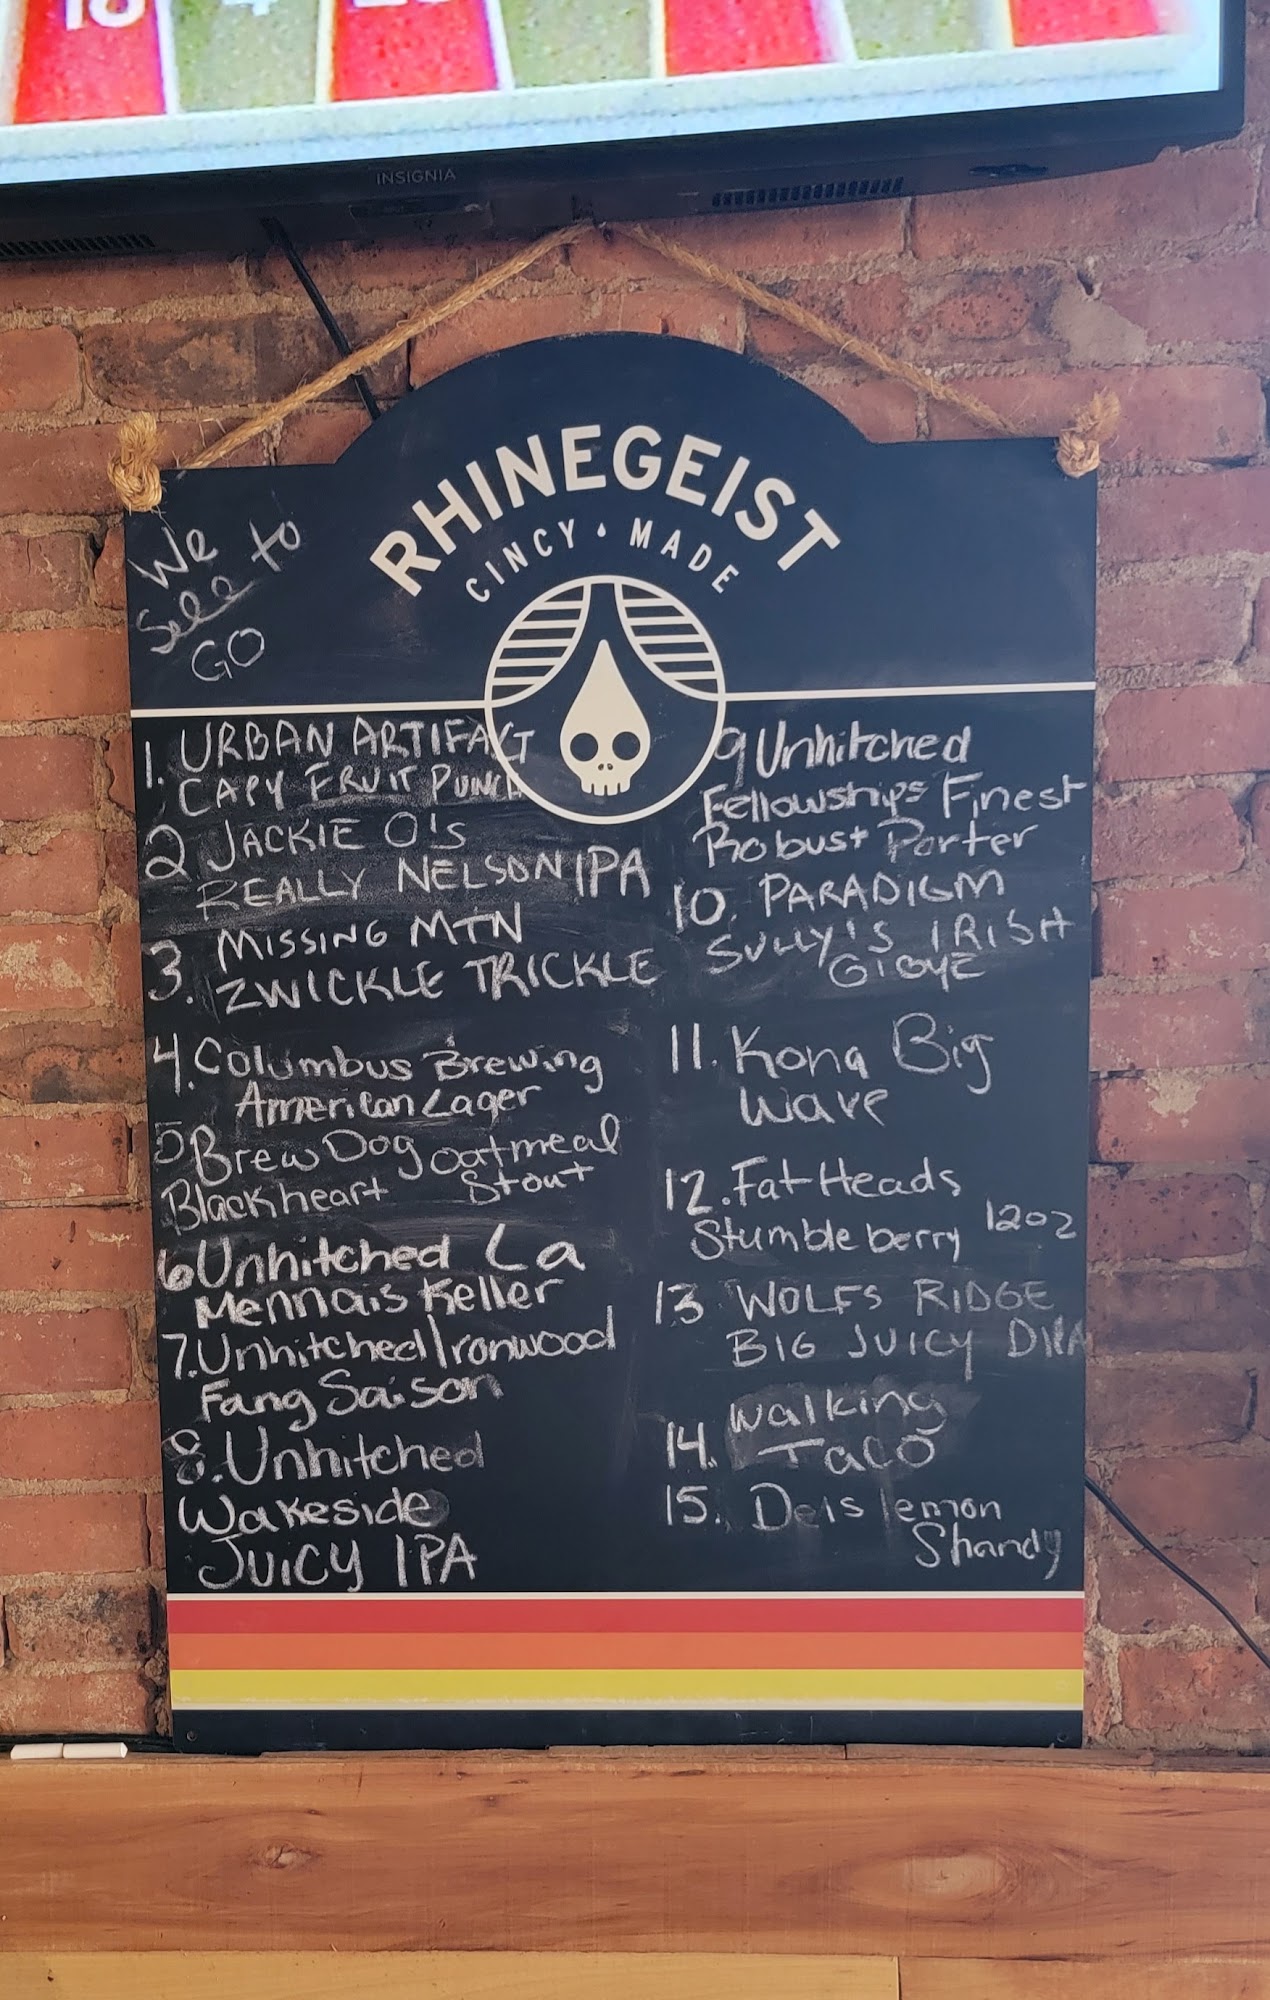 18 4
INSIGNIA
RHINEGEIST
CINCY • MADE
We
Sell to
GO
1. URBAN ARTIFACT
CAPY FRUIT PUNCH
2 JACKIE O's
REALLY NELSON IPA
3. MISSING MTN
ZWICKLE TRICKLE
4. Columbus Brewing
American Lager
5 BrewDog oatmeal
Blackheart Stout
6 Unhitched La
Mennais Keller
7. Unhitched Ironwood
Fang Saison
8. Unhitched
Wakeside
JUICY IPA
9 Unhitched
Fellowships Finest
Robust Porter
10. PARADIGM
SULLY'S IRISH
11. Kona Big
Wave
12. Fat Heads
Stumbleberry 12oz
13 WOLFS RIDGE
BIG JUICY DIPA
14. Walking
Taco
15. Deis lemon
Shandy